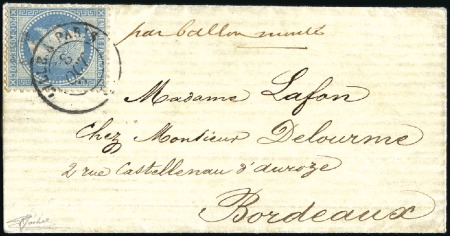 par ballon monté
PARIS
Madame Lafon
Chez Monsieur Delourme
2 rue Castellenau d'auroze
Bordeaux